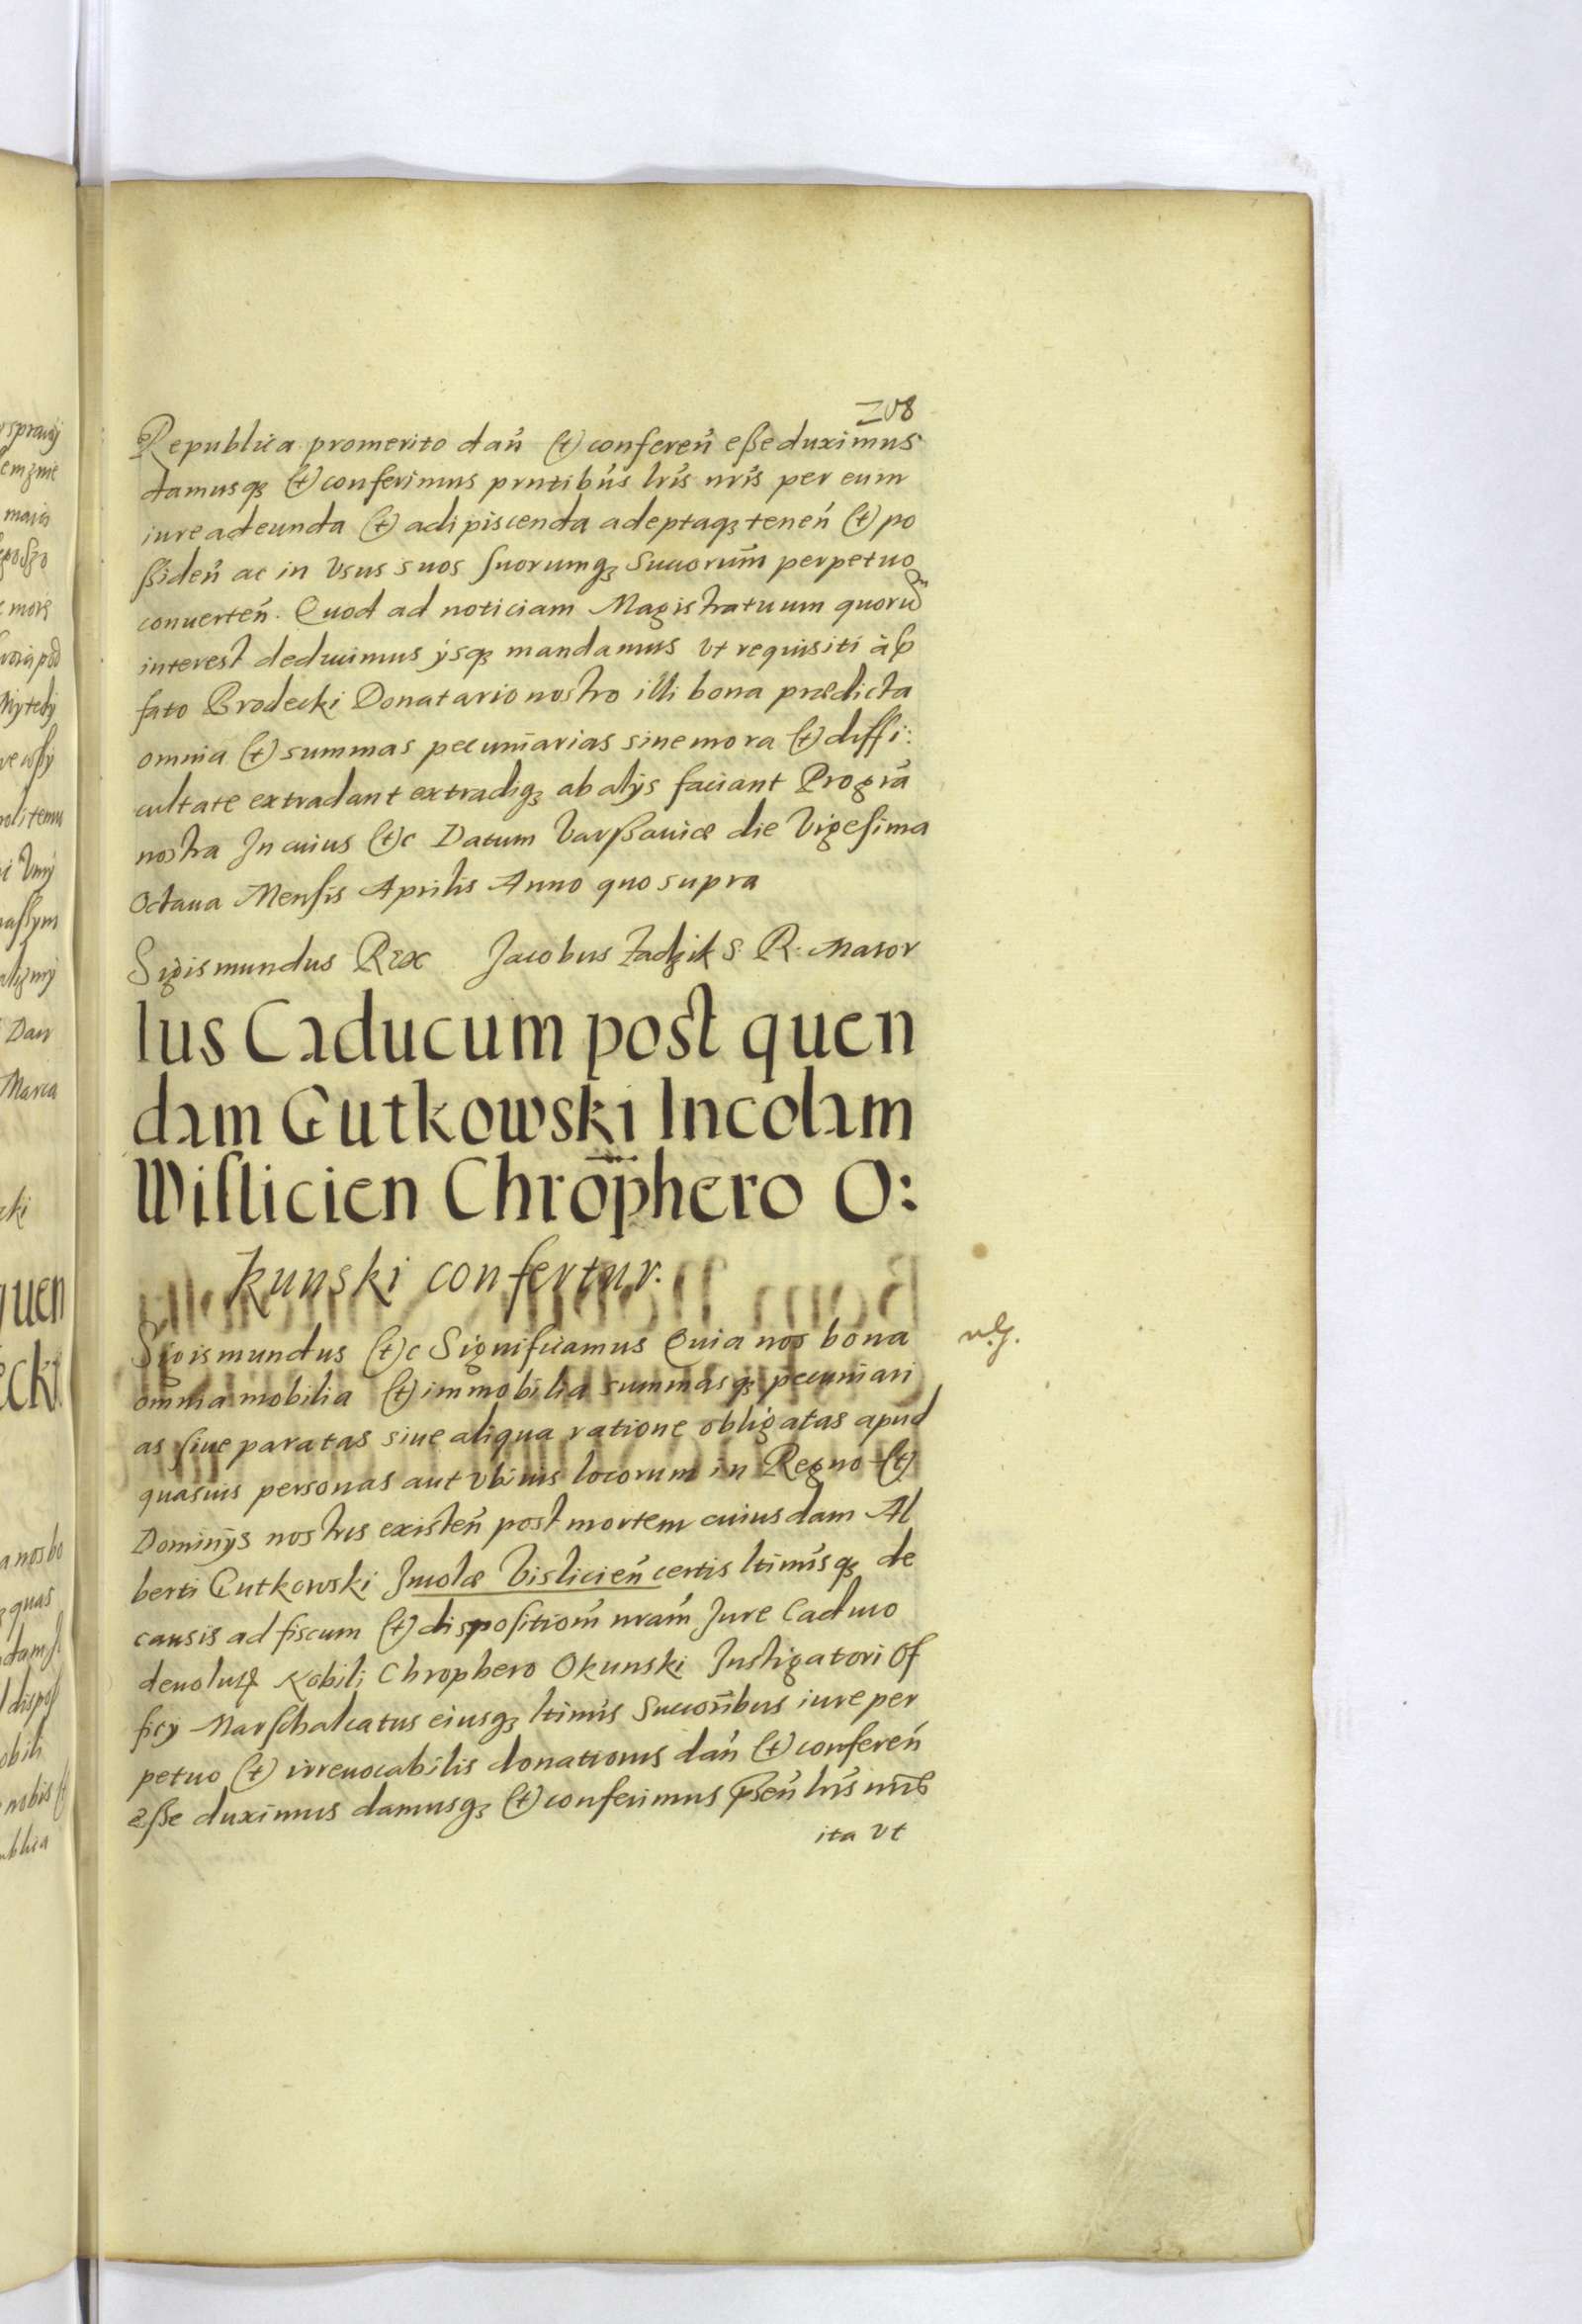 208
Republica promerito dan̄ (et) conferen̄ eße duximus
damusqꝫ (et) conferimus pn̄tibus lr̄is nr̄is per eum
iure adeunda (et) adipiscenda adeptaqꝫ tenen̄ (et) po
ßiden̄ ac in Usus suos suorumqꝫ Succorum̄ perpetuo
conuerten̄. Quod ad noticiam Magistratuum quorum
interest deducimus ijsqꝫ mandamus Ut requisiti à p̄
fato Brodecki Donatario nostro illi bona prædicta
omnia (et) summas pecuniarias sine mora (et) diffi:
cultate extradant extradiqꝫ ab alijs faciant Pro gr̄a
nostra In cuius (et)c Datum Varßauiæ die Vigesima
Octaua Mensis Aprilis Anno quo supra
Sigismundus Rex Jacobus Zadzik S. R. Maior
Ius Caducum post quen
dam Gutkowski Incolam
Wislicien Chrop̄hero O:
kunski confertur.
Sigismundus (et)c Significamus Quia nos bona
omnia mobilia (et) immobilia summasqꝫ pecuniari
as siue paratas siue aliqua ratione obligatas apud
quasuis personas aut Ubiuis locorum in Regno (et)
Dominijs nostris existen̄ post mortem cuiusdam Al
berti Gutkowski Incolæ Vislicien̄ certis ltimisqꝫ de
causis ad fiscum (et) dispositiom̄ nram̄ Jure Caduco
deuolutꝭ Nobili Chrophero Okunski Instigatori Of
ficij Marschalcatus eiusqꝫ ltimis Succoribus iure per
petuo (et) irreuocabilis donationis dan̄ (et) conferen̄
eße duximus damusqꝫ (et) conferimus p̄sen̄ lr̄is nr̄is
ita Ut